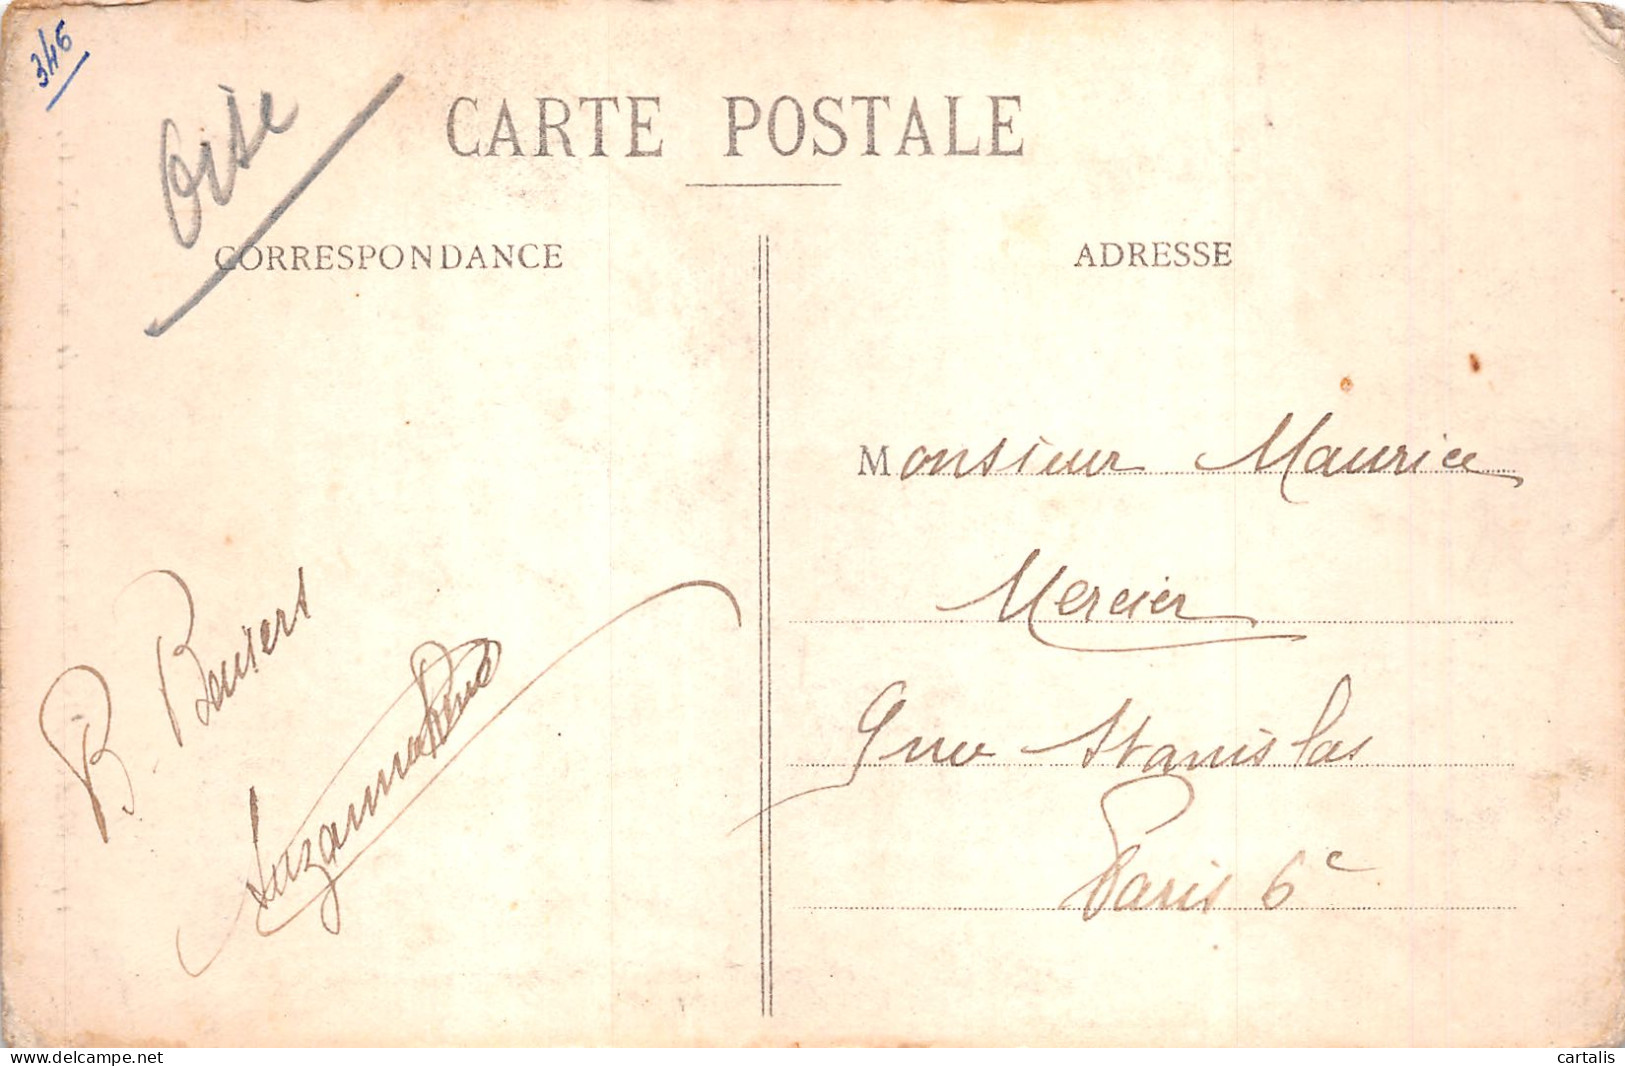 346
Oise
CARTE POSTALE
CORRESPONDANCE
ADRESSE
Monsieur Maurice
Mercier
9 rue Stanislas
Paris 6e
B. Baisers
Suzanne
cartalis